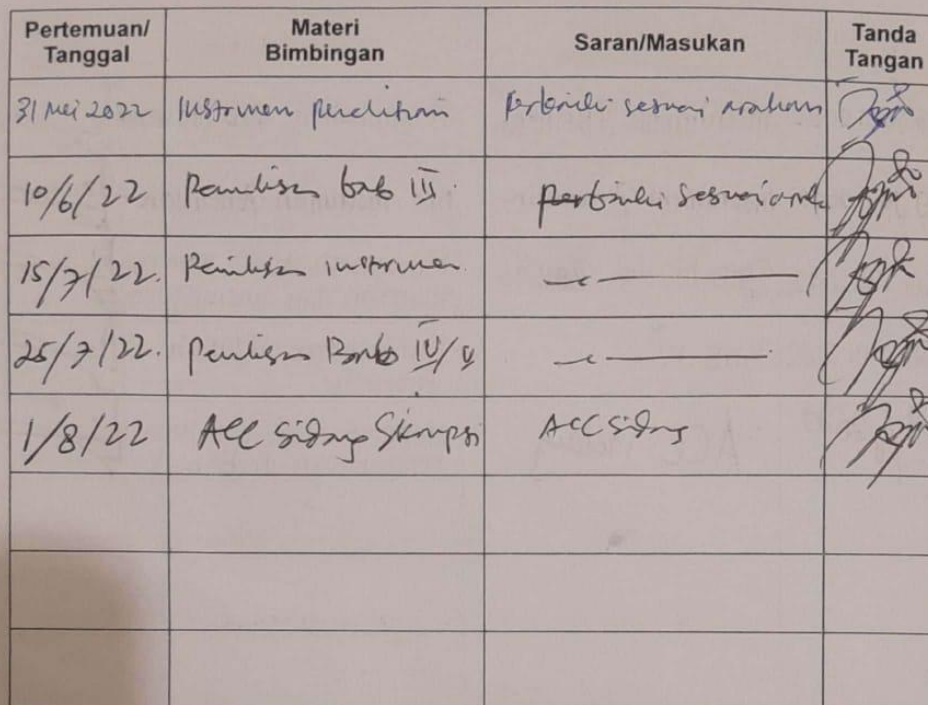 Pertemuan/ Tanggal Materi Bimbingan Saran/Masukan Tanda Tangan
31 Mei 2022 Instrumen penelitian Perbaiki sesuai arahan
10/6/22 Penulisan bab III. Perbaiki sesuai
15/7/22. Penulisan instrumen
25/7/22. Penulisan Bab IV/V
1/8/22 ACC sidang Skripsi ACC sidang